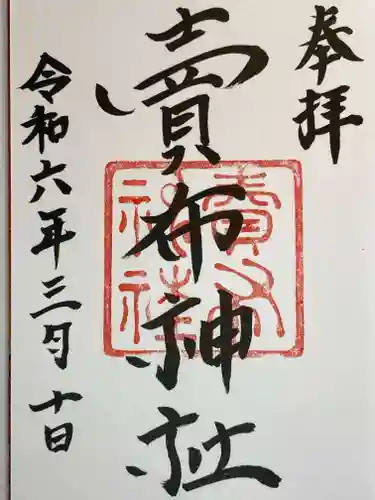 奉拝
賣布神社
令和六年三月十日
賣布
神社